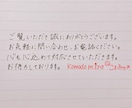 ご覧いただき誠にありがとうございます。
お気軽に問い合わせ、お電話ください。
心を込めて対応させていただきます。
お待ちしております。